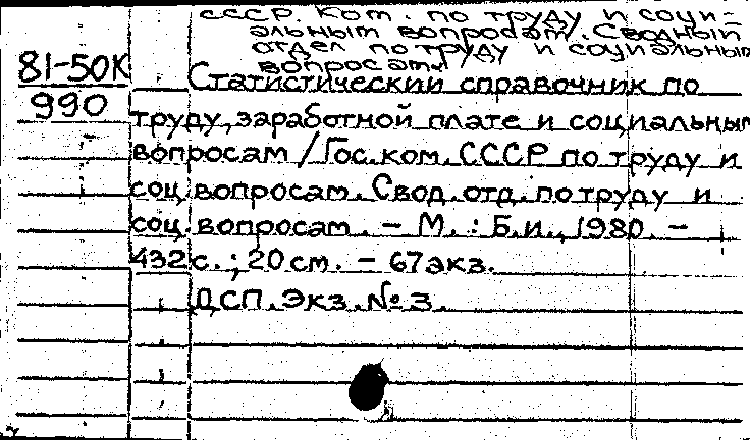 СССР. Ком. по труду и соци-
альным вопросам. Сводный
отдел по труду и социальным
вопросам.
81-50К
990
Статистический справочник по
труду, заработной плате и социальным
вопросам / Гос. ком. СССР по труду и
соц. вопросам. Свод. отд. по труду и
соц. вопросам. – М. : Б.и., 1980. –
432 с. ; 20 см. – 67 экз.
ДСП. Экз. № 3.